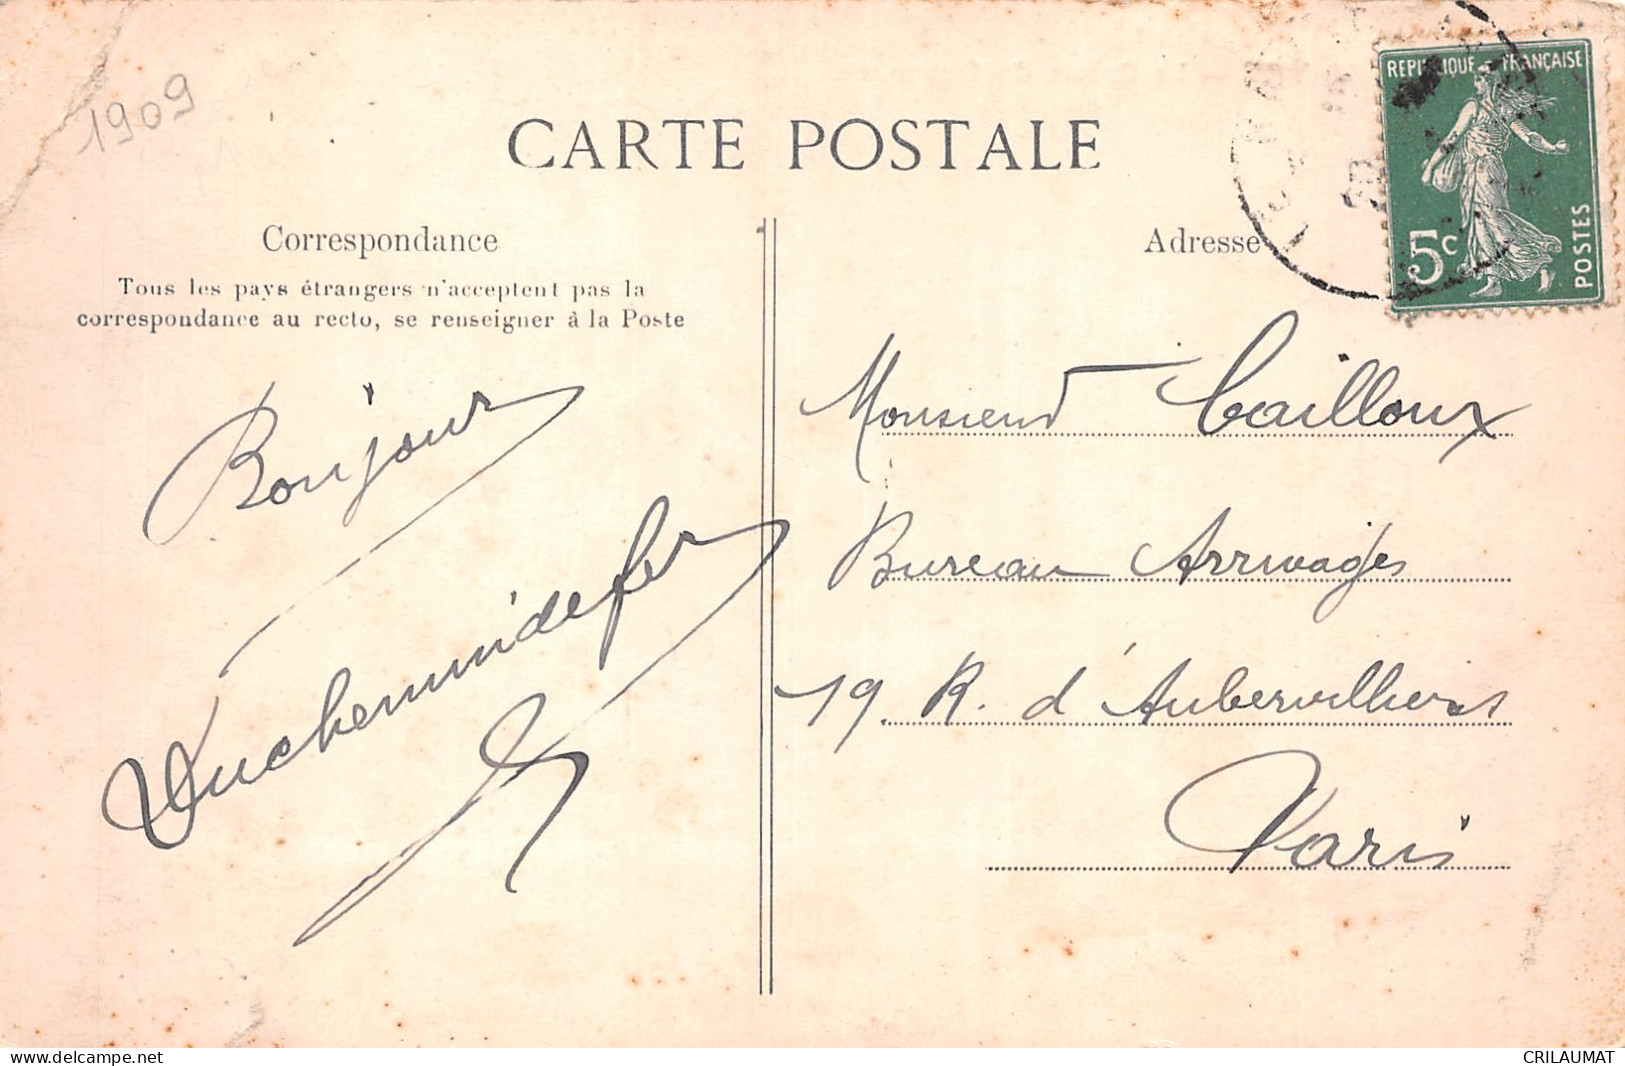 1909
CARTE POSTALE
REPUBLIQUE FRANÇAISE
5c
POSTES
Correspondance
Tous les pays étrangers n'acceptent pas la
correspondance au recto, se renseigner à la Poste
Bonjour
Duchemindefer
Adresse
Monsieur Cailloux
Bureau Arrivages
19 R. d'Aubervilliers
Paris
www.delcampe.net
CRILAUMAT